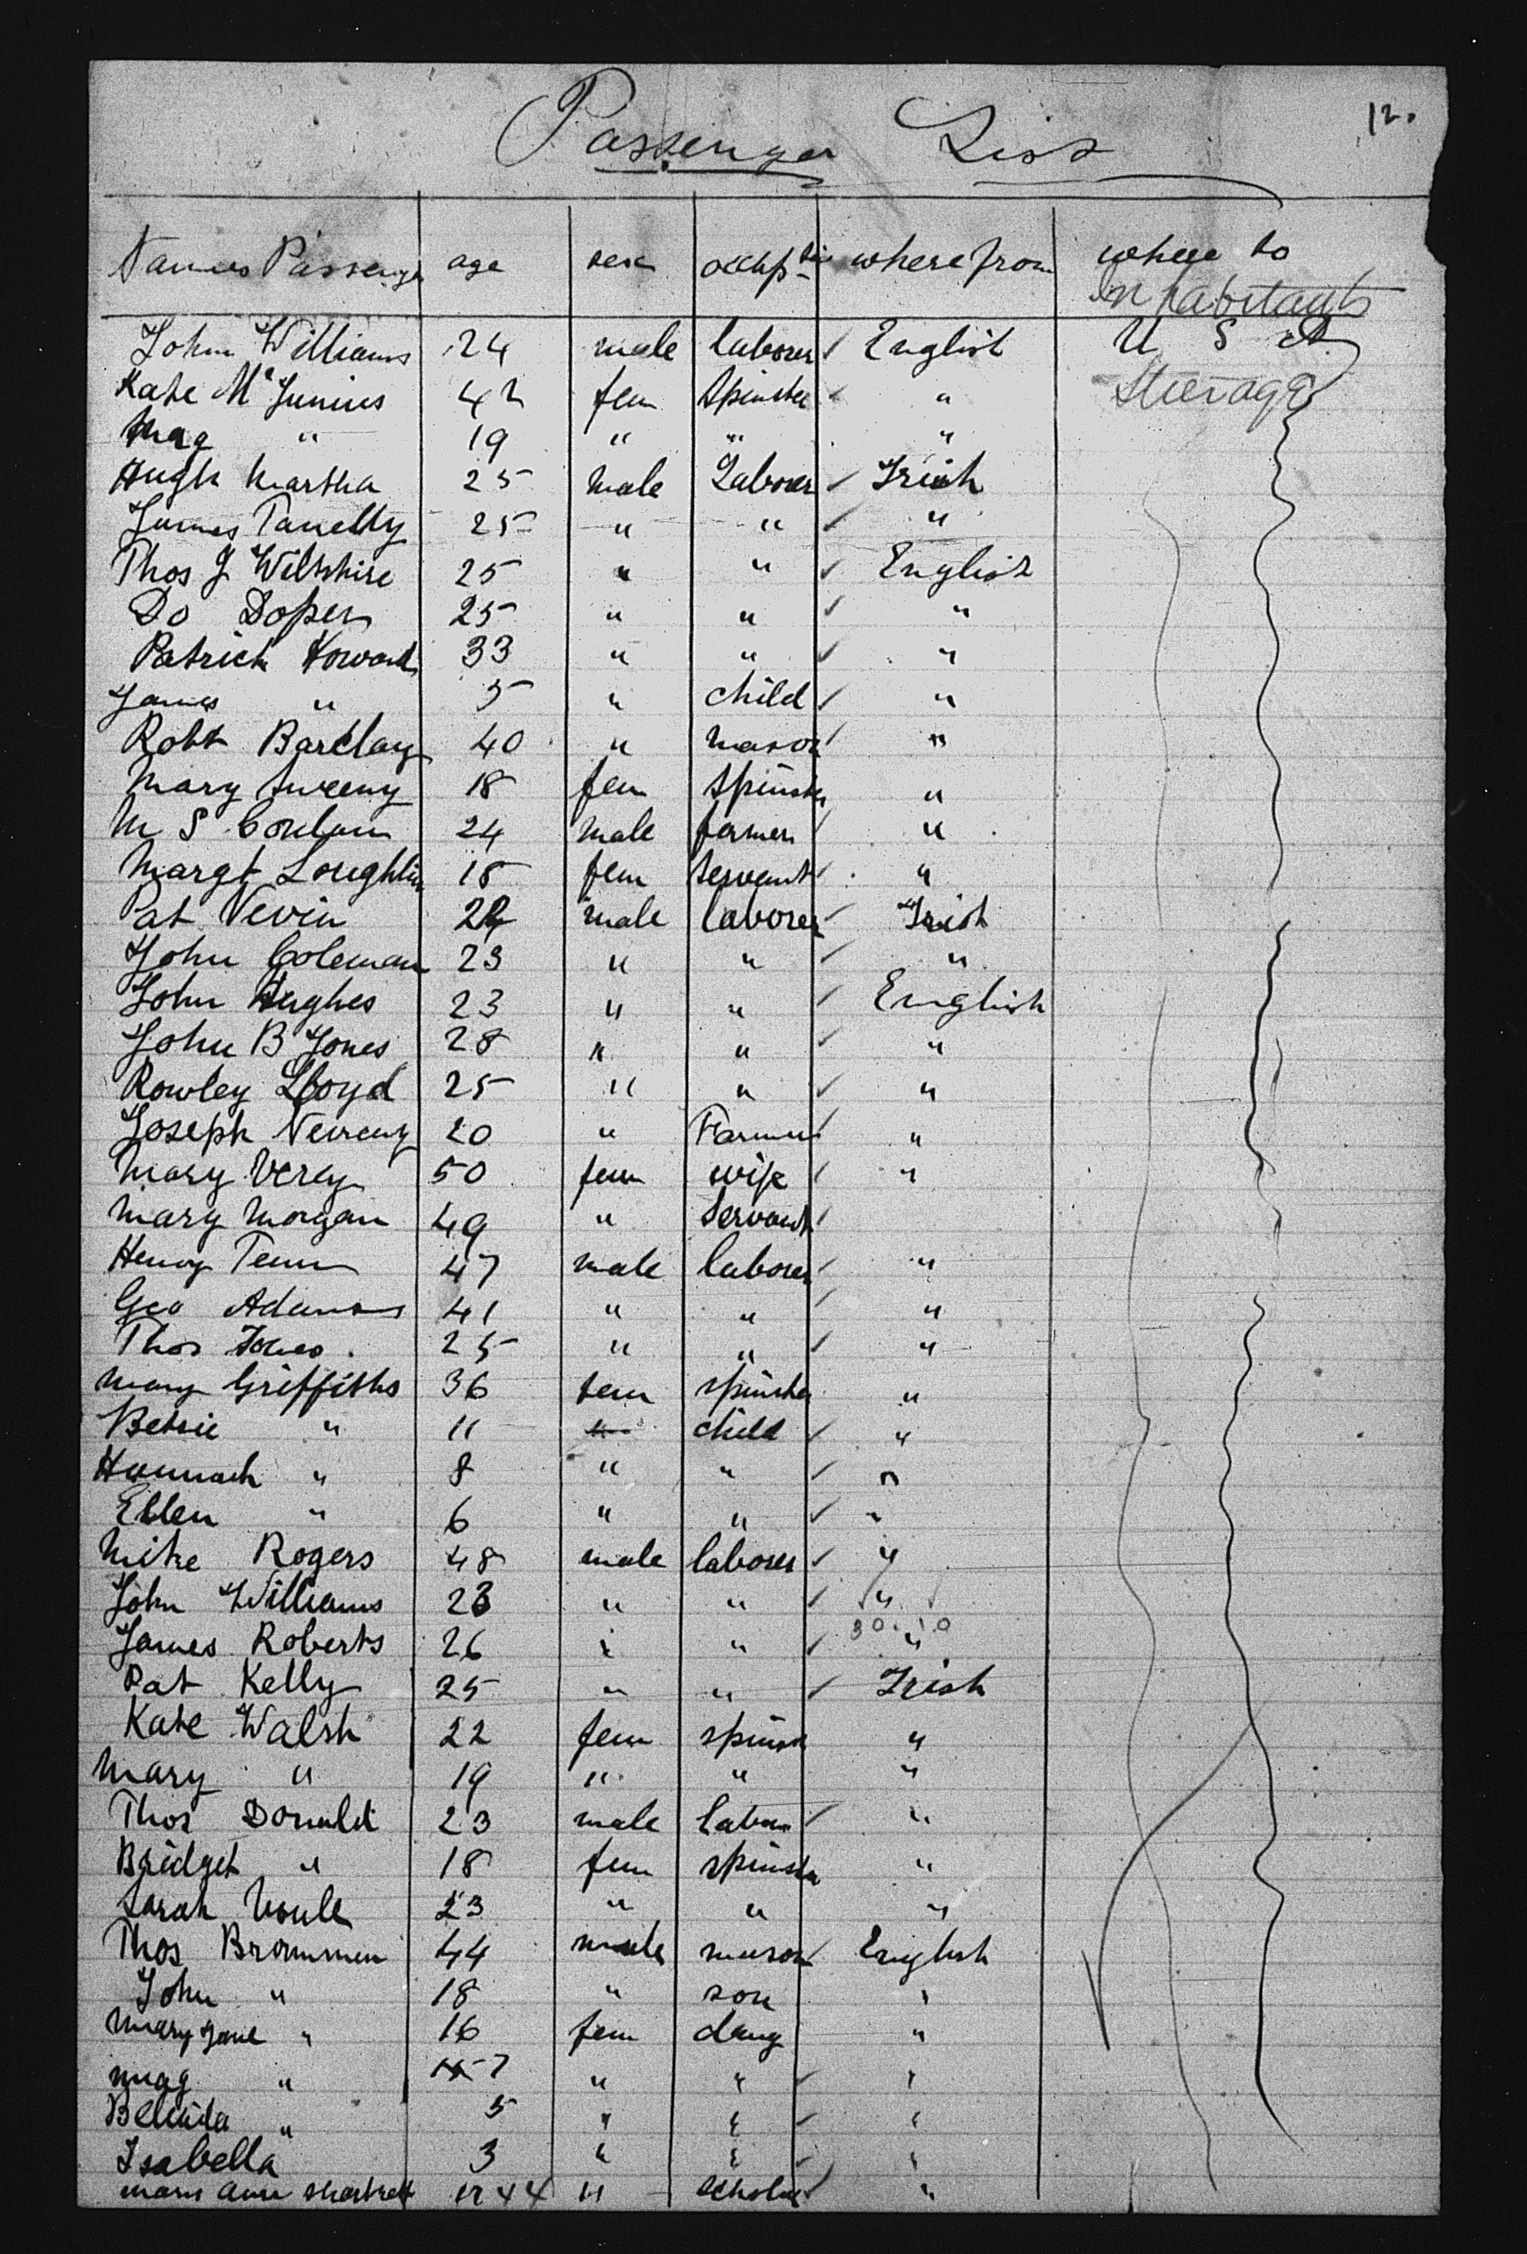 12.
Passenger List
Names Passenger age sex occup tion where from where to
Inhabitants
John Williams 24 male laborer ✓ English U S A
Kate Mc Junius 42 fem Spinster ✓ " Steerage
Mag " 19 " " "
Hugh Martha 25 Male Laborer ✓ Irish
James 25 " " ✓ "
Thos J Wiltshire 25 " " ✓ English
Do Doper 25 " " ✓ "
Patrick Howard 33 " " ✓ "
James " 5 " child ✓ "
Robt Barclay 40 " mason ✓ "
Mary Sweeny 18 fem Spinster "
M S Conlam 24 Male farmer ✓ "
Margt Loughlin 18 fem Servant ✓ "
Pat Nevin male laborer ✓ Irish
John Coleman 23 " " ✓ "
John Hughes 23 " " ✓ English
John B Jones 28 " " ✓ "
Rowley Lloyd 25 " " ✓ "
Joseph 20 " Farmer ✓ "
Mary Verey 50 fem wife ✓ "
Mary Morgan 49 " Servant ✓
Henry 47 male laborer ✓ "
Geo Adams 41 " " ✓ "
Thos Jones 25 " " ✓ "
Mary Griffiths 36 fem spinster "
Betsie " 11 " child ✓ "
Hannach " 8 " " ✓ "
Ellen " 6 " " ✓ "
Mike Rogers 48 male laborer ✓ "
John Williams 23 " " ✓ "
James Roberts 26 " " ✓ "
Pat Kelly 25 " " ✓ Irish
Kate Walsh 22 fem spinst "
Mary " 19 " " "
Thos Donald 23 male labor ✓ "
Bridget " 18 fem spinster "
Sarah 23 " " "
Thos Brommen 44 male mason ✓ English
John " 18 " son "
Mary Jane " 16 fem daug "
Mag " 7 " " ✓ "
Belinda " 5 " " ✓ "
Isabella 3 " " ✓ "
Mary Ann " Scholar ✓ "